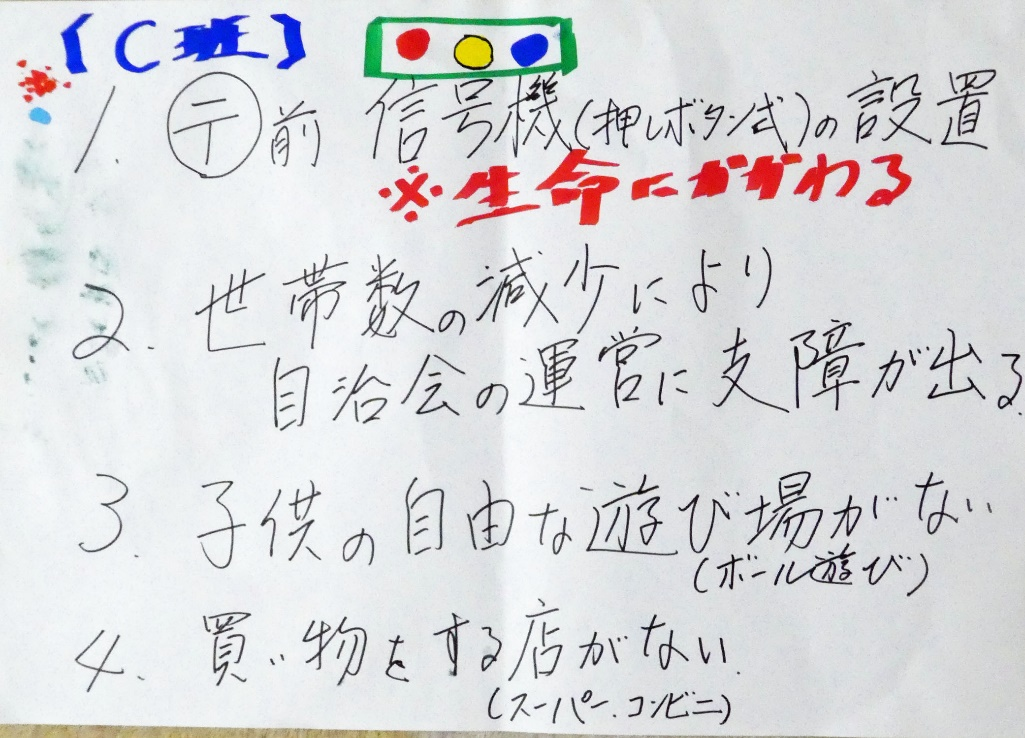 【C班】
1. 〒前 信号機(押しボタン式)の設置
※生命にかかわる
2. 世帯数の減少により
自治会の運営に支障が出る.
3. 子供の自由な遊び場がない
(ボール遊び)
4. 買い物をする店がない.
(スーパー.コンビニ)